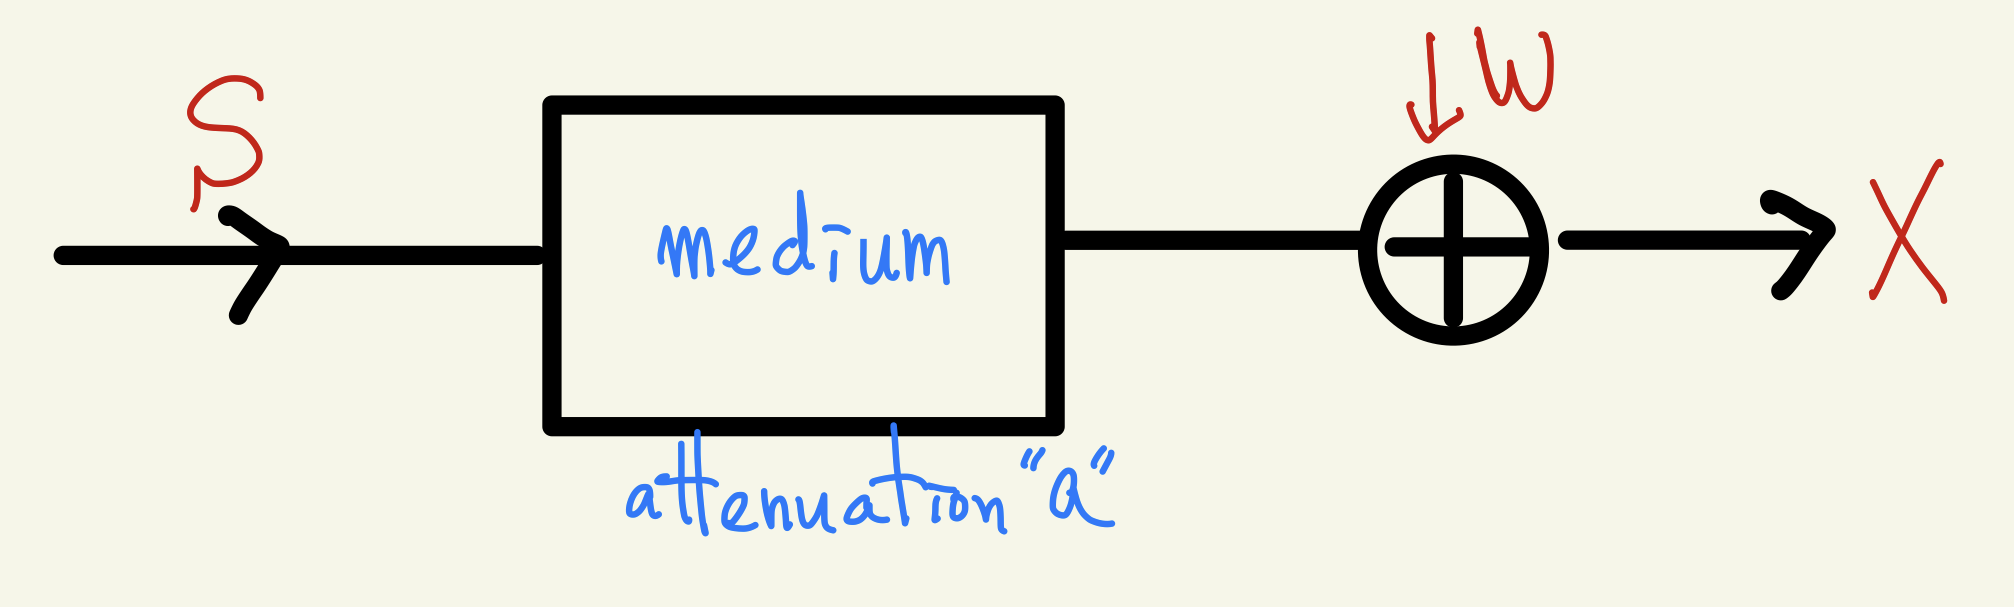 S
medium
attenuation "a"
W
X